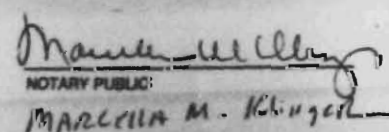 NOTARY PUBLIC:
MARCELLA M. Klinger